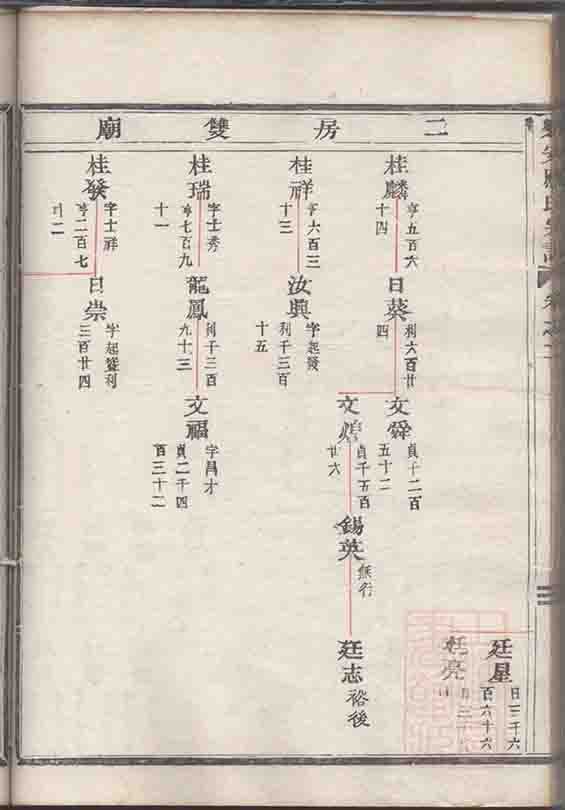 二房雙廟
廷星
百六十六
廷亮
桂麟
亨五百六
十四
日葵
利六百廿
四
文舜
貞十二百
五十二
文煌
貞千五百
廿六
錫英
無行
廷志
裕後
桂祥
亨六百三
十三
汝興
字起發
利千三百
十五
桂瑞
字士秀
亨七百九
十一
龍鳳
利千三百
九十三
文福
字昌才
貞二千四
百三十二
桂發
字士祥
亨二百七
日崇
三百廿四